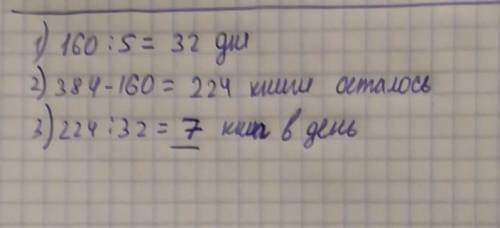 1) 160 : 5 = 32 дня
2) 384 - 160 = 224 книги осталось
3) 224 : 32 = 7 книг в день